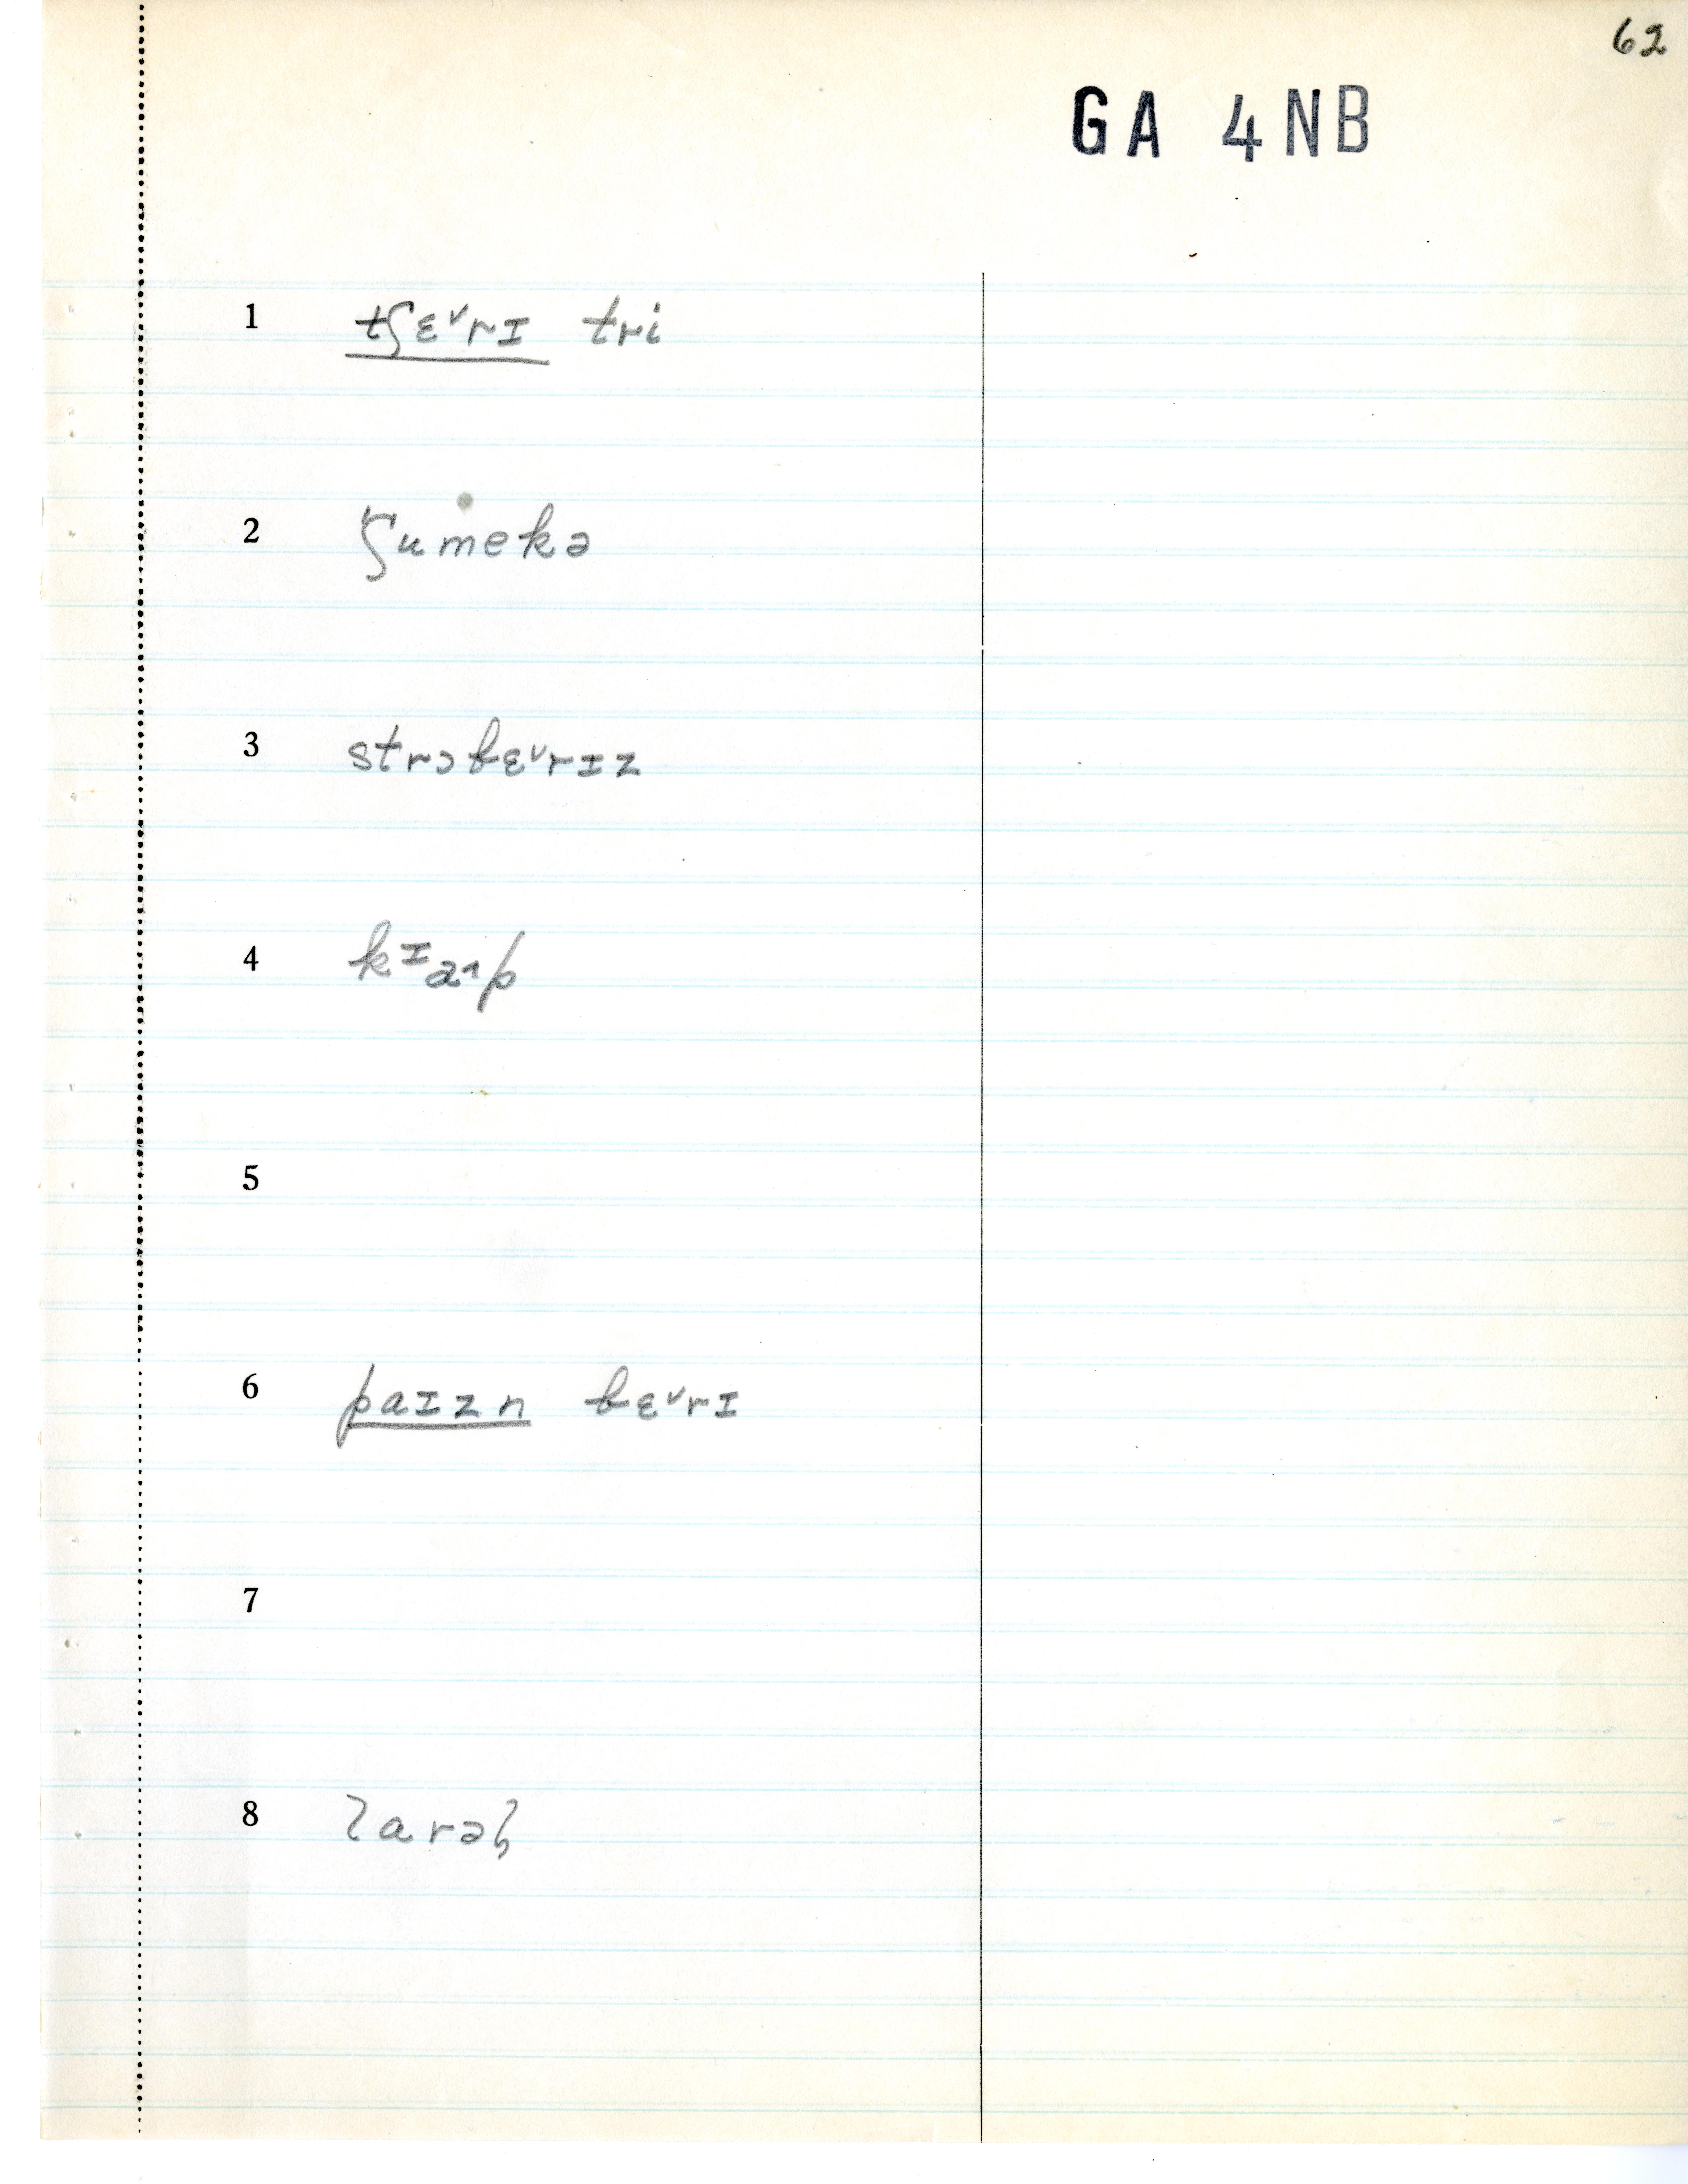 62
GA 4NB
1 tʃɛ˅rɪ tri
2 ʃumekə
3 strɔbɛ˅rɪz
4 kᶦa˄p
5
6 paɪzn bɛ˅rɪ
7
8 larəl